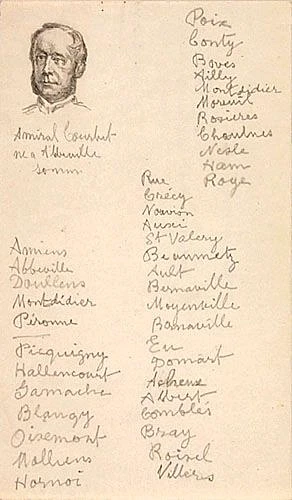 Amiral Courbet
né a Abbeville
Somme
Amiens
Abbeville
Doullens
Montdidier
Péronne
Picquigny
Hallencourt
Gamache
Blangy
Oisemont
Molliens
Hornoi
Rue
Crécy
Nouvion
Auxi
St Valery
Beaumetz
Ault
Bernaville
Moyenville
Barnaville
Eu
Domart
Acheux
Albert
Combles
Bray
Roisel
Villers
Poix
Conty
Boves
Ailly
Montdidier
Moreuil
Rosieres
Chaulnes
Nesle
Ham
Roye